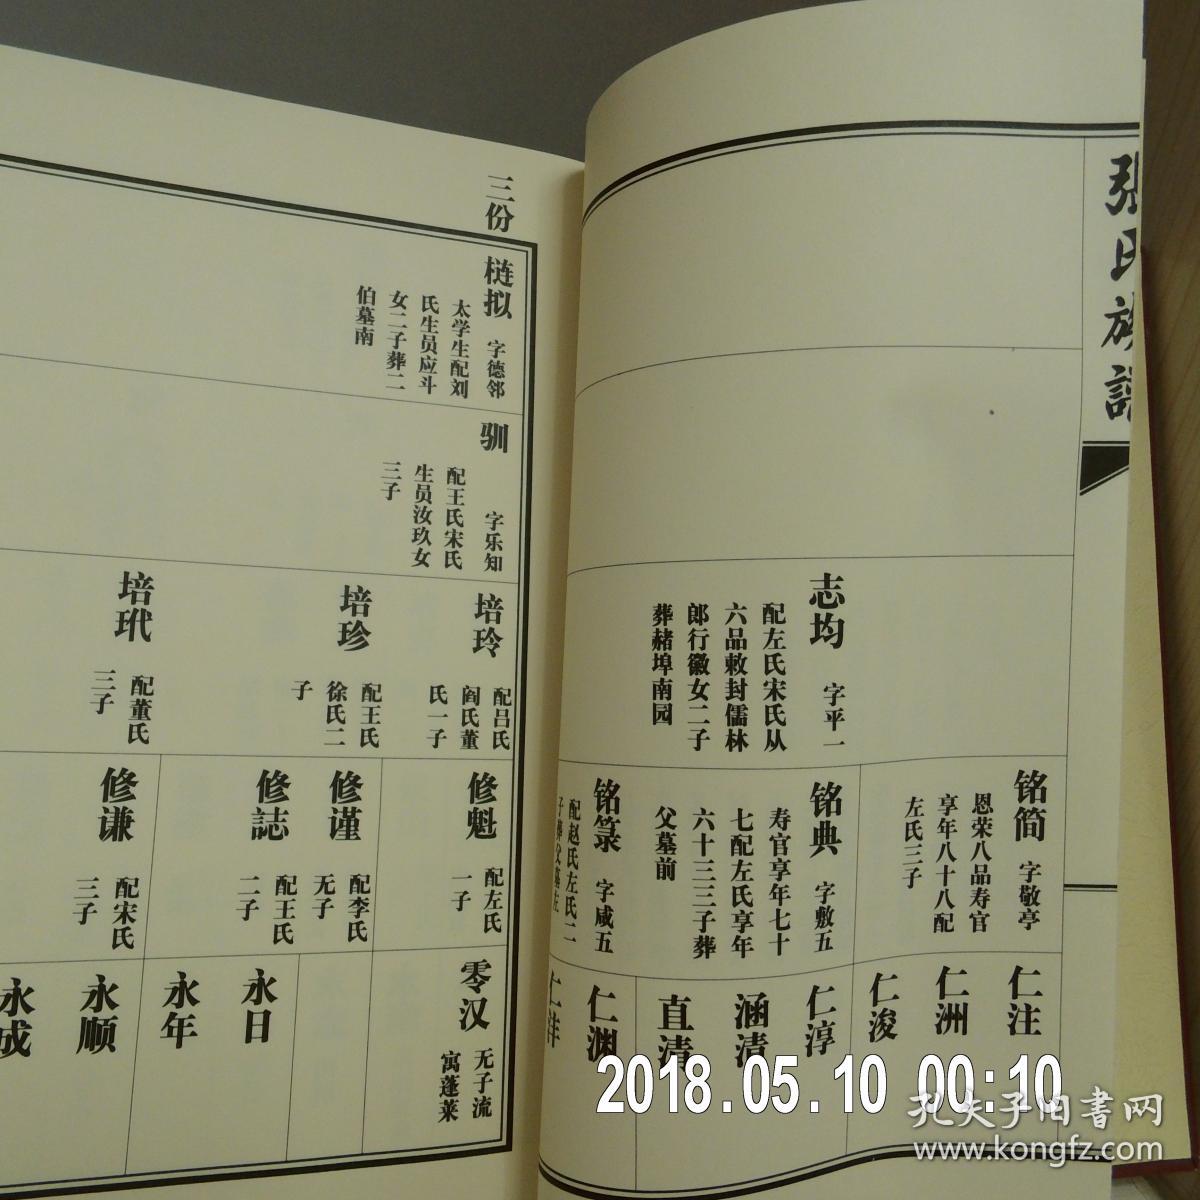 張氏族譜
志均 字平一
配左氏宋氏从
六品敕封儒林
郎行徽女二子
葬赭埠南园
铭简 字敬亭
恩荣八品寿官
享年八十八配
左氏三子
铭典 字敷五
寿官享年七十
七配左氏享年
六十三三子葬
父墓前
铭箓 字咸五
配赵氏左氏二
子葬父墓左
仁注
仁洲
仁浚
仁淳
涵清
直清
仁渊
三份
梿拟 字德邻
太学生配刘
氏生员应斗
女二子葬二
伯墓南
驯 字乐知
配王氏宋氏
生员汝玖女
三子
培玲 配吕氏
阎氏董
氏一子
培珍 配王氏
徐氏二
子
培玳 配董氏
三子
修魁 配左氏
一子
修谨 配李氏
无子
修誌 配王氏
二子
修谦 配宋氏
三子
零汉 无子流
寓蓬莱
永日
永年
永顺
永成
2018.05.10 00:10
孔夫子旧书网
www.kongfz.com